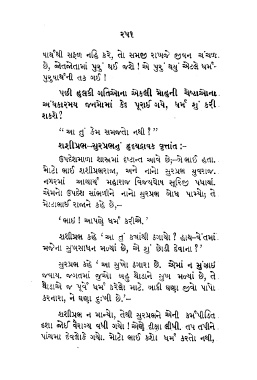 ૨૫૧
પાર્થથી સફળ નહિ કરે, તો સમજી રાખજે જીવન ચંચળ
છે, જોતજોતામાં પુરું થઈ જશે ! એ પુરું થયું એટલે ધર્મ-
પુરુષાર્થની તક ગઈ !
પછી હલકી ગતિઓના એકલી મોહની ચેષ્ટાઓના
અંધકારમય જનમોમાં કેદ પૂરાઈ ગયે, ધર્મ શું કરી
શકશે ?
“ આ તું કેમ સમજતો નથી ? ”
શશીપ્રભ-સુરપ્રભનું હૃદયદ્રાવક વૃત્તાંત :-
ઉપદેશમાળા શાસ્ત્રમાં દષ્ટાન્ત આવે છે;-બે ભાઈ હતા.
મોટો ભાઈ શશીપ્રભરાજા, અને નાનો સુરપ્રભ યુવરાજ.
નગરમાં આચાર્ય મહારાજ વિજયઘોષ સૂરિજી પધાર્યા.
એમનો ઉપદેશ સાંભળીને નાનો સુરપ્રભ બોધ પામ્યો; તે
મોટાભાઈ રાજાને કહે છે,-
‘ ભાઈ ! આપણે ધર્મ કરીએ.’
શશીપ્રભ કહે ‘ આ તું ક્યાંથી ઠગાયો ? હાથ-વેંતમાં
મજેના સુખસાધન મળ્યાં છે, એ શું છોડી દેવાના ?’
સુરપ્રભ કહે ‘ આ સુખો ઠગારા છે. એમાં ન મુંઝાઇ
જવાય. જગતમાં જુઓ બહુ થોડાને સુખ મળ્યાં છે, તે
થોડાએ જ પૂર્વે ધર્મ કરેલો માટે. બાકી ઘણા જીવો પાપો
કરનારા, ને ઘણા દુઃખી છે.’-
શશીપ્રભ ન માન્યો, તેથી સુરપ્રભને એની કર્મપીડિત
દશા જોઈ વૈરાગ્ય વધી ગયો ! એણે દીક્ષા લીધી. તપ તપીને
પાંચમા દેવલોકે ગયો. મોટો ભાઈ કશો ધર્મ કરતો નથી,